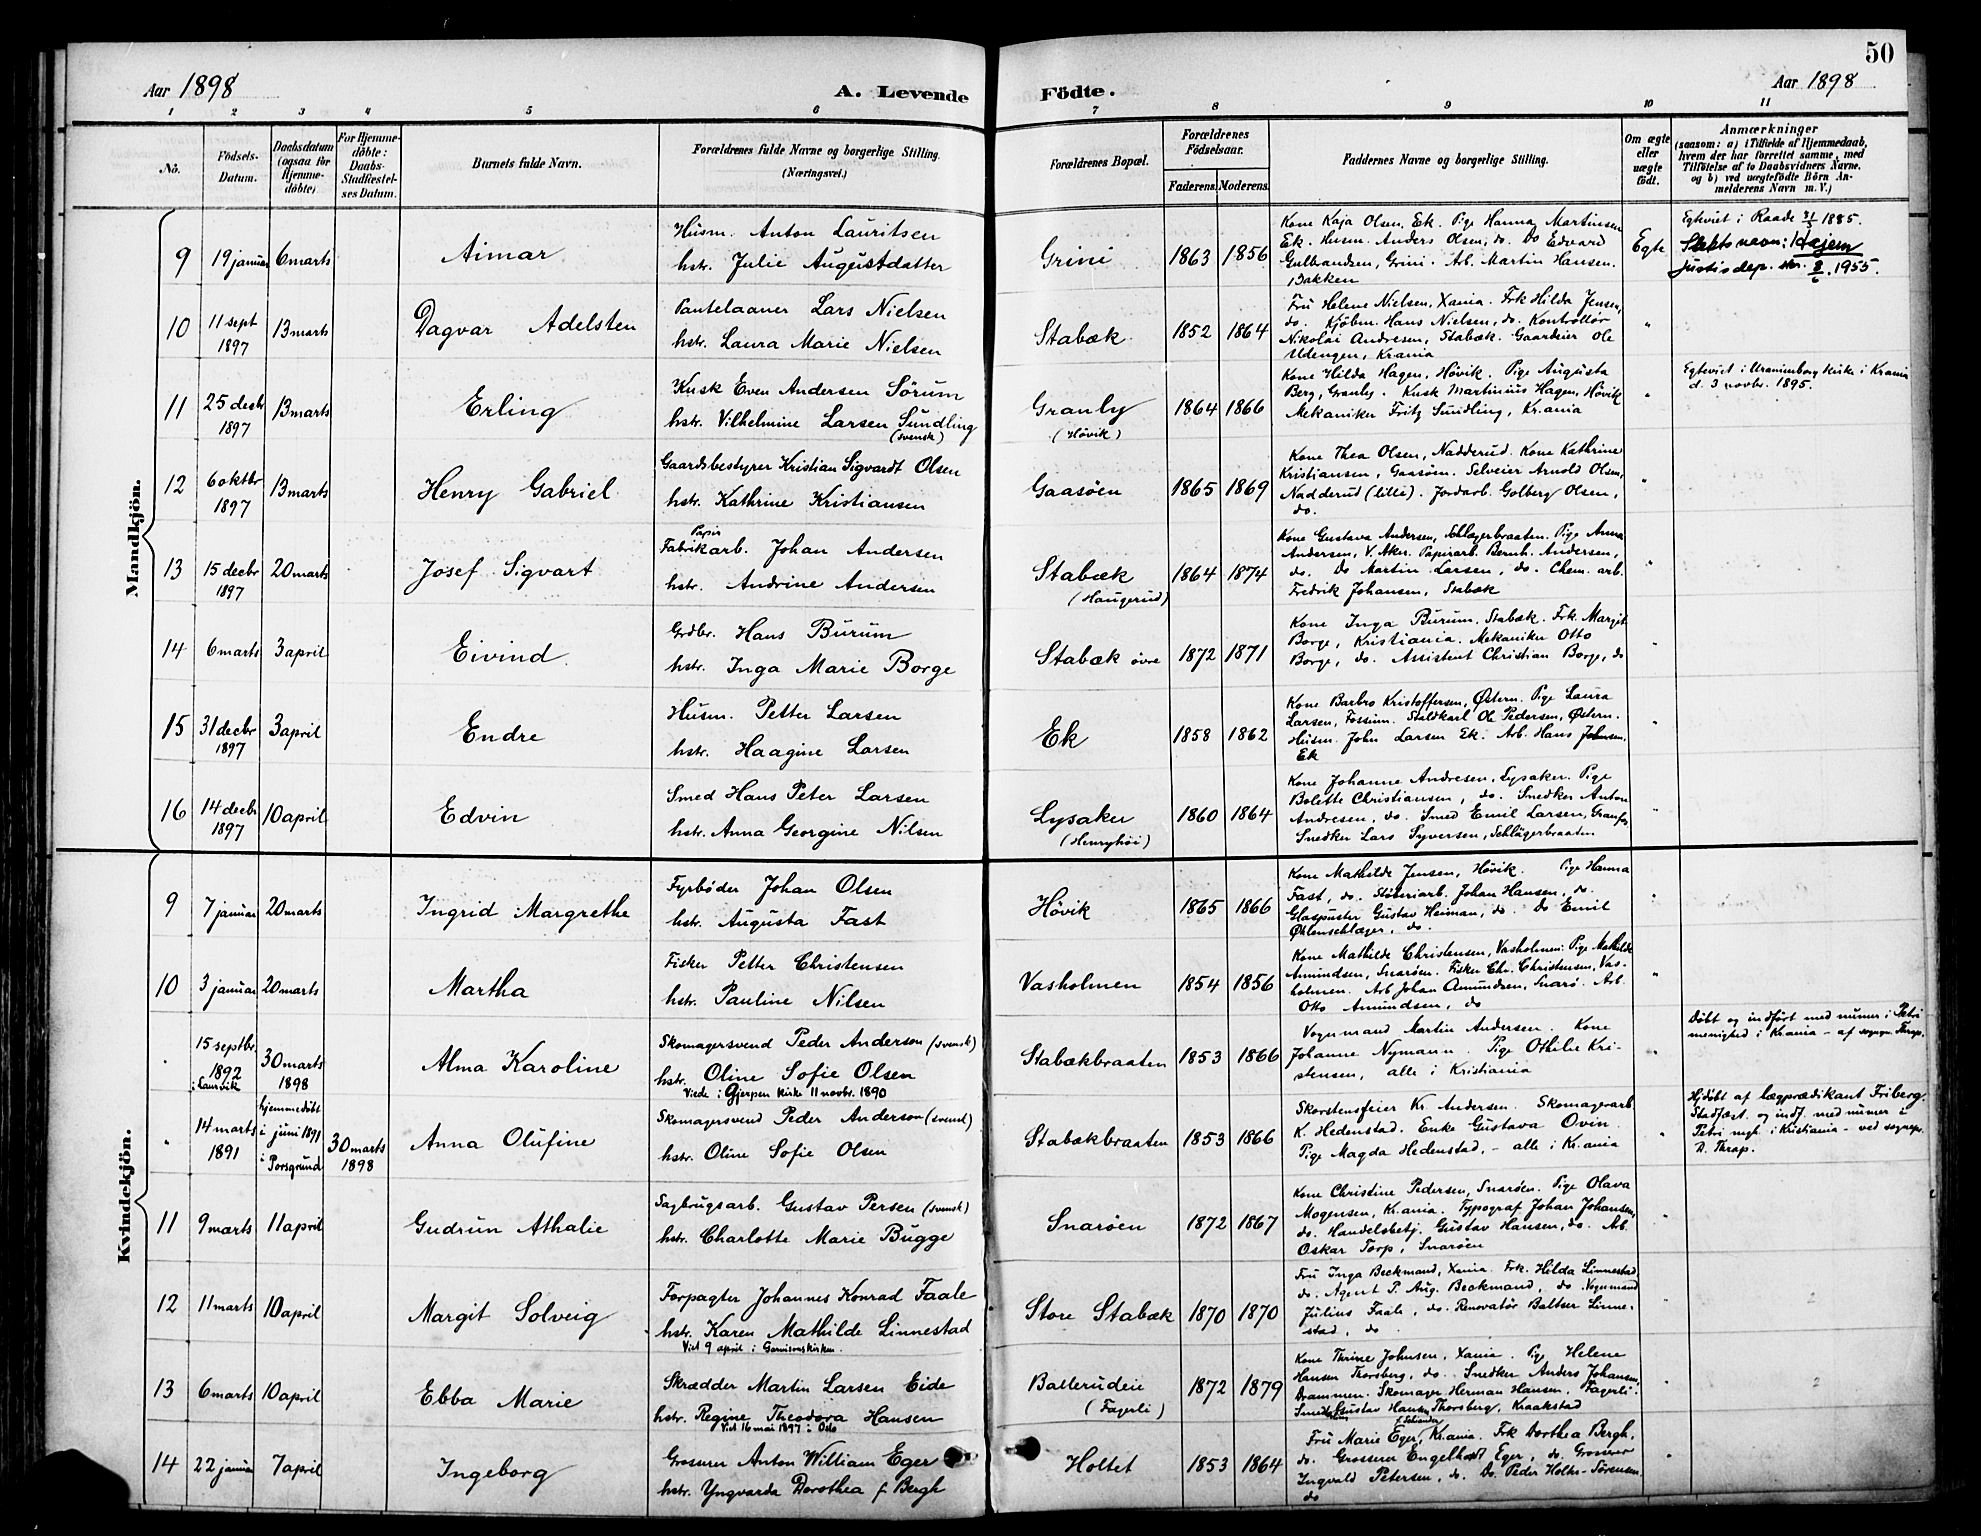 50
Aar 1898
A. Levende
Födte.
Aar 1898
1 2 3 4 5 6 7 8 9 10 11
No.
Födsels-
Datum.
Daabsdatum
(ogsaa for
Hjemme-
döbte)
For Hjemme-
döbte:
Daabs-
Stadfæstel-
ses Datum.
Barnets fulde Navn.
Forældrenes fulde Navne og borgerlige Stilling.
(Næringsvei.)
Forældrenes Bopæl.
Forældrenes
Födselsaar.
Faderens. Moderens.
Faddernes Navne og borgerlige Stilling.
Om ægte
eller
uægte
födt.
Anmærkninger
(saasom: a) i Tilfælde af Hjemmedaab,
hvem der har forrettet samme, med
Tilföielse af to Daabsvidners Navne,
og b) ved uægtefödte Börn An-
melderens Navn m. V.)
Mandkjön.
9 19 januar 6 marts
Aimar
Husm. Anton Lauritsen
hstr. Julie Augustdatter
Grini 1863 1856
Kone Kaja Olsen, Ek. Pige Hanna Martinsen
Ek. Husm. Anders Olsen, do. Do Edvard
Gulbrandsen, Grini. Arb. Martin Hansen.
Bakken
Egte
Egteviet i Raade 1885.
Slektsnavn: Hajem
justisdep. 1955.
10 11 sept 1897 13 marts
Dagvar Adelsten
Pantelaaner Lars Nielsen
hstr. Laura Marie Nielsen
Stabæk 1852 1864
Fru Helene Nielsen, Xania. Frk Hilda Jensen,
do. Kjöbm. Hans Nielsen, do. Kontrollör
Nikolai Andresen, Stabæk. Gaardeier Ole
Udengen, Krania
"
11 25 decbr 1897 13 marts
Erling
Kusk Even Andersen Sörum
hstr. Vilhelmine Larsen Sundling
(svensk)
Granly
(Høvik)
1864 1866
Kone Hilda Hagen, Høvik. Pige Augusta
Berg, Granly. Kusk Martinius Hagen, Høvik
Mekaniker Fritz Sundling, Kr.ania
"
Egteviet i Uranienborg kirke i Krania
d. 3 novbr. 1895.
12 6 oktbr 1897 13 marts
Henry Gabriel
Gaardsbestyrer Kristian Sigvardt Olsen
hstr. Kathrine Kristiansen
Gaasöen 1865 1869
Kone Thea Olsen, Nadderud. Kone Kathrine
Kristiansen, Gaasöen. Selveier Arnold Olsen,
Nadderud (lille). Jordarb. Golberg Olsen,
do.
"
13 15 decbr 1897 20 marts
Josef Sigvart
Papir
Fabrikarb. Johan Andersen
hstr. Andrine Andersen
Stabæk
(Haugerud)
1864 1874
Kone Gustava Andersen, Schlægerbraaten. Pige Anna
Andersen, V. Aker. Papirarb. Bernh. Andersen,
do. Do Martin Larsen, do. Chem. arb.
Fredrik Johansen, Stabæk
"
14 6 marts 3 april
Eivind
Grdbr. Hans Burum
hstr. Inga Marie Borge
Stabæk øvre 1872 1871
Kone Inga Burum. Stabæk. Frk. Margit
Borge, Kristiania. Mekaniker Otto
Borge, do. Assistent Christian Borge, do
"
15 31 decbr 1897 3 april
Endre
Husm. Petter Larsen
hstr. Haagine Larsen
Ek 1858 1862
Kone Barbro Kristoffersen, Østern. Pige Laura
Larsen, Fossum. Staldkarl Ole Pedersen, Østern.
Husm. John Larsen Ek. Arb. Hans Johnsen,
Ek
"
16 14 decbr 1897 10 april
Edvin
Smed Hans Peter Larsen
hstr. Anna Georgine Nilsen
Lysaker
(Henryhöi)
1860 1864
Kone Johanne Andresen, Lysaker. Pige
Bolette Christiansen, do. Snedker Anton
Andresen, do. Smed Emil Larsen, Granfos
Snedker Lars Syversen, Schlägerbraaten
"
Kvindekjön.
9 7 januar 20 marts
Ingrid Margrethe
Fyrbøder Johan Olsen
hstr. Augusta Fast
Høvik 1865 1866
Kone Mathilde Jensen, Høvik. Pige Hanna
Fast, do. Støberiarb. Johan Hansen, do.
Glaspuster Gustav Heiman, do. Do Emil
Øhlenschlæger, do.
"
10 3 januar 20 marts
Martha
Fisker Petter Christensen
hstr. Pauline Nilsen
Vasholmen 1854 1856
Kone Mathilde Christensen, Vasholmen. Pige Mathilde
Amundsen, Snarøen. Fisker Chr. Christensen, Vas-
holmen. Arb Johan Amundsen, Snarø. Arb.
Otto Amundsen, do
"
" 15 septbr. 1892 i Laurvik 30 marts 1898
Alma Karoline
Skomagersvend Peder Anderson (svensk)
hstr. Oline Sofie Olsen
Viede i Gjerpen kirke 11 novbr. 1890
Stabækbraaten 1853 1866
Vognmand Martin Andersen. Kone
Johanne Nymann. Pige Othilie Kri-
stensen, alle i Kristiania
"
Døbt og indført med numer i Petri
menighed i Krania - af sognepr. Thrap.
" 14 marts 1891
hjemmedøbt
i juni 1891
i Porsgrund
30 marts 1898
Anna Olufine
Skomagersvend Peder Anderson (svensk)
hstr. Oline Sofie Olsen
Stabækbraaten 1853 1866
Skorstensfeier Kr. Andersen. Skomagerarb
K. Hedenstad. Enke Gustava Ovin.
Pige Magda Hedenstad, - alle i Kr.ania
"
Hjdøbt af lægprædikant Friberg.
Stadfæst. og indf. med numer i
Petri mgh. i Kristiania - ved sognepr.
D. Thrap.
11 9 marts 11 april
Gudrun Athalie
Sagbrugsarb. Gustav Persen (svensk)
hstr. Charlotte Marie Bugge
Snarøen 1872 1867
Kone Christine Pedersen, Snarøen. Pige Olava
Mogensen, Kr.ania. Typograf Johan Johansen,
do. Handelsbetj. Gustav Hansen, do. Arb.
Oskar Torp, Snarøen
"
12 11 marts 10 april
Margit Solveig
Forpagter Johannes Konrad Faale
hstr. Karen Mathilde Linnestad
Viet 9 april i Garnisonskirken.
Store Stabæk 1870 1870
Fru Inga Beckmand, Xania. Frk. Hilda Linnestad
do. Agent P. Aug. Beckmand, do Vognmand
Julius Faale, do. Renovatör Baltser Linne-
stad, do
"
13 6 marts 10 april
Ebba Marie
Skrædder Martin Larsen Eide
hstr. Regine Theodora Hansen
Viet 16 mai 1897 i Oslo
Ballerudeie
(Fagerli)
1872 1879
Kone Thrine Johnsen, Xania. Pige Helene
Hansen Thorsberg, do. Snedker Anders Johansen,
Drammen. Skomager Herman Hansen, Fagerli.
Smed Gustav Hansen Thorsberg, Kraakstad
"
14 22 januar 7 april
Ingeborg
Grosserer Anton William Eger
hstr. Yngvarda Dorothea f Bergh
Holtet 1853 1864
Fru Marie Eger, Kr.ania. Frk Dorthea Bergh,
do. Grosserer Engelhardt Eger, do. Grosserer
Ingvald Petersen, do. Do. Peder Holter-Sörensen
do
"